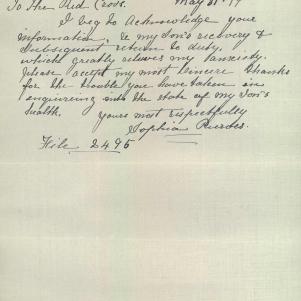 To The Red Cross. May 31st 17
I beg to Acknowledge your
information, re my Son's recovery &
Subsequent return to duty,
which greatly relieves my anxiety.
Please accept my most Sincere thanks
for the trouble you have taken in
enquiring into the state of my Son's
health.
Yours most respectfully
Sophia
File 2495